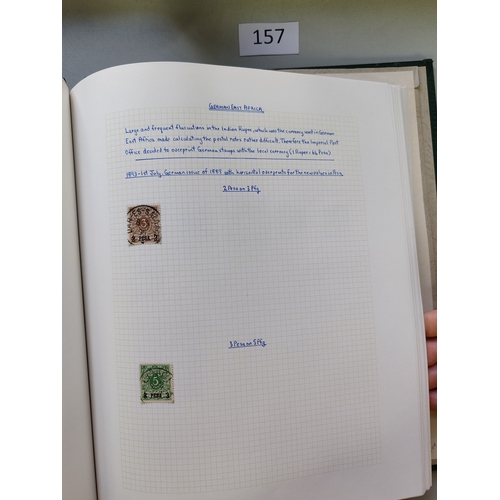 157
GERMAN EAST AFRICA
Large and frequent fluctuations in the Indian Rupee, which was the currency used in German
East Africa made calculating the postal rates rather difficult. Therefore the Imperial Post
Office decided to overprint German stamps with the local currency (1 Rupee = 64 Pesa)
1893 - 1st July, German issue of 1889 with horizontal overprints for the new values in Pesa
2 Pesa on 3 Pfg
3
2 PESA 2
3 Pesa on 5 Pfg
5
3 PESA 3